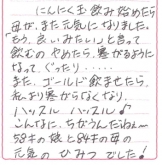 にんにく玉飲み始めたら
母が、また元気になりました。
「もう、良いみたい」と言って
飲むのやめたら、寒がるように
なって、ぐったり‥‥
また、ゴールド飲ませたら、
私より寒がらなくなり、
ハッスル ハッスル♪
こんなに、ちがうんだねぇ〜
58才の娘と84才の母の
元気のひみつでした!